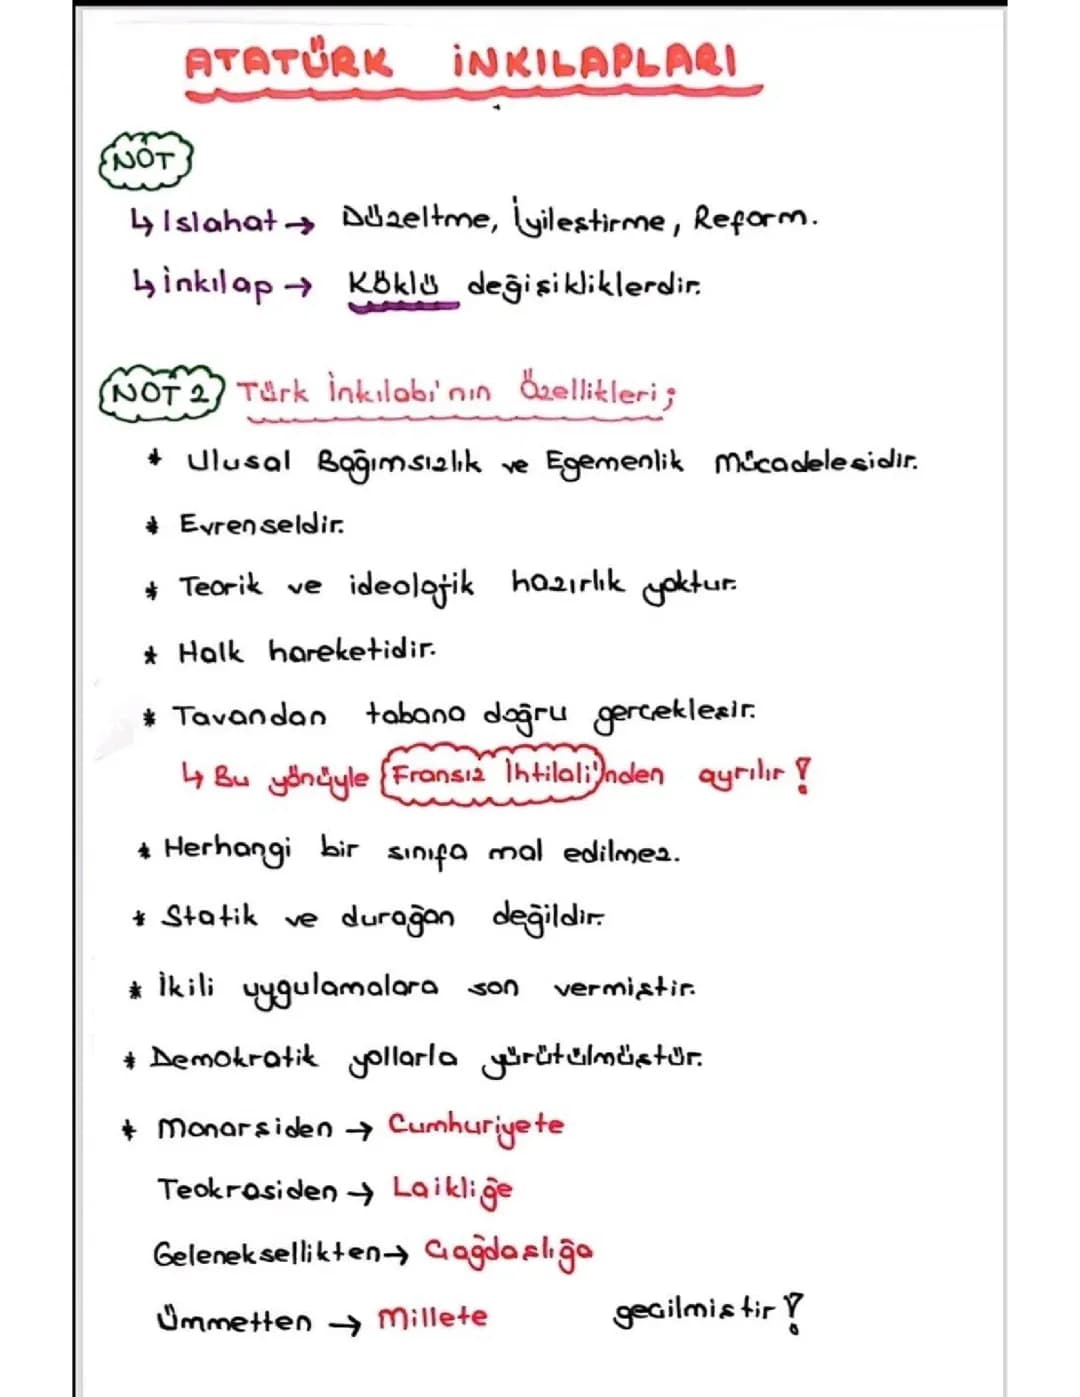 ATATÜRK İNKILAPLARI
NOT
↳ Islahat → Düzeltme, İyileştirme, Reform.
↳ inkılap → Köklü değişikliklerdir.
NOT 2 Türk İnkılabı'nın Özellikleri;
* Ulusal Bağımsızlık ve Egemenlik mücadelesidir.
* Evrenseldir.
* Teorik ve ideolojik hazırlık yoktur.
* Halk hareketidir.
* Tavandan tabana doğru gerçekleşir.
↳ Bu yönüyle Fransız İhtilali'nden ayrılır !
* Herhangi bir sınıfa mal edilmez.
* Statik ve durağan değildir.
* İkili uygulamalara son vermiştir.
* Demokratik yollarla yürütülmüştür.
* Monarşiden → Cumhuriyete
Teokrasiden → Laikliğe
Geleneksellikten → Çağdaşlığa
Ümmetten → Millete geçilmiştir !